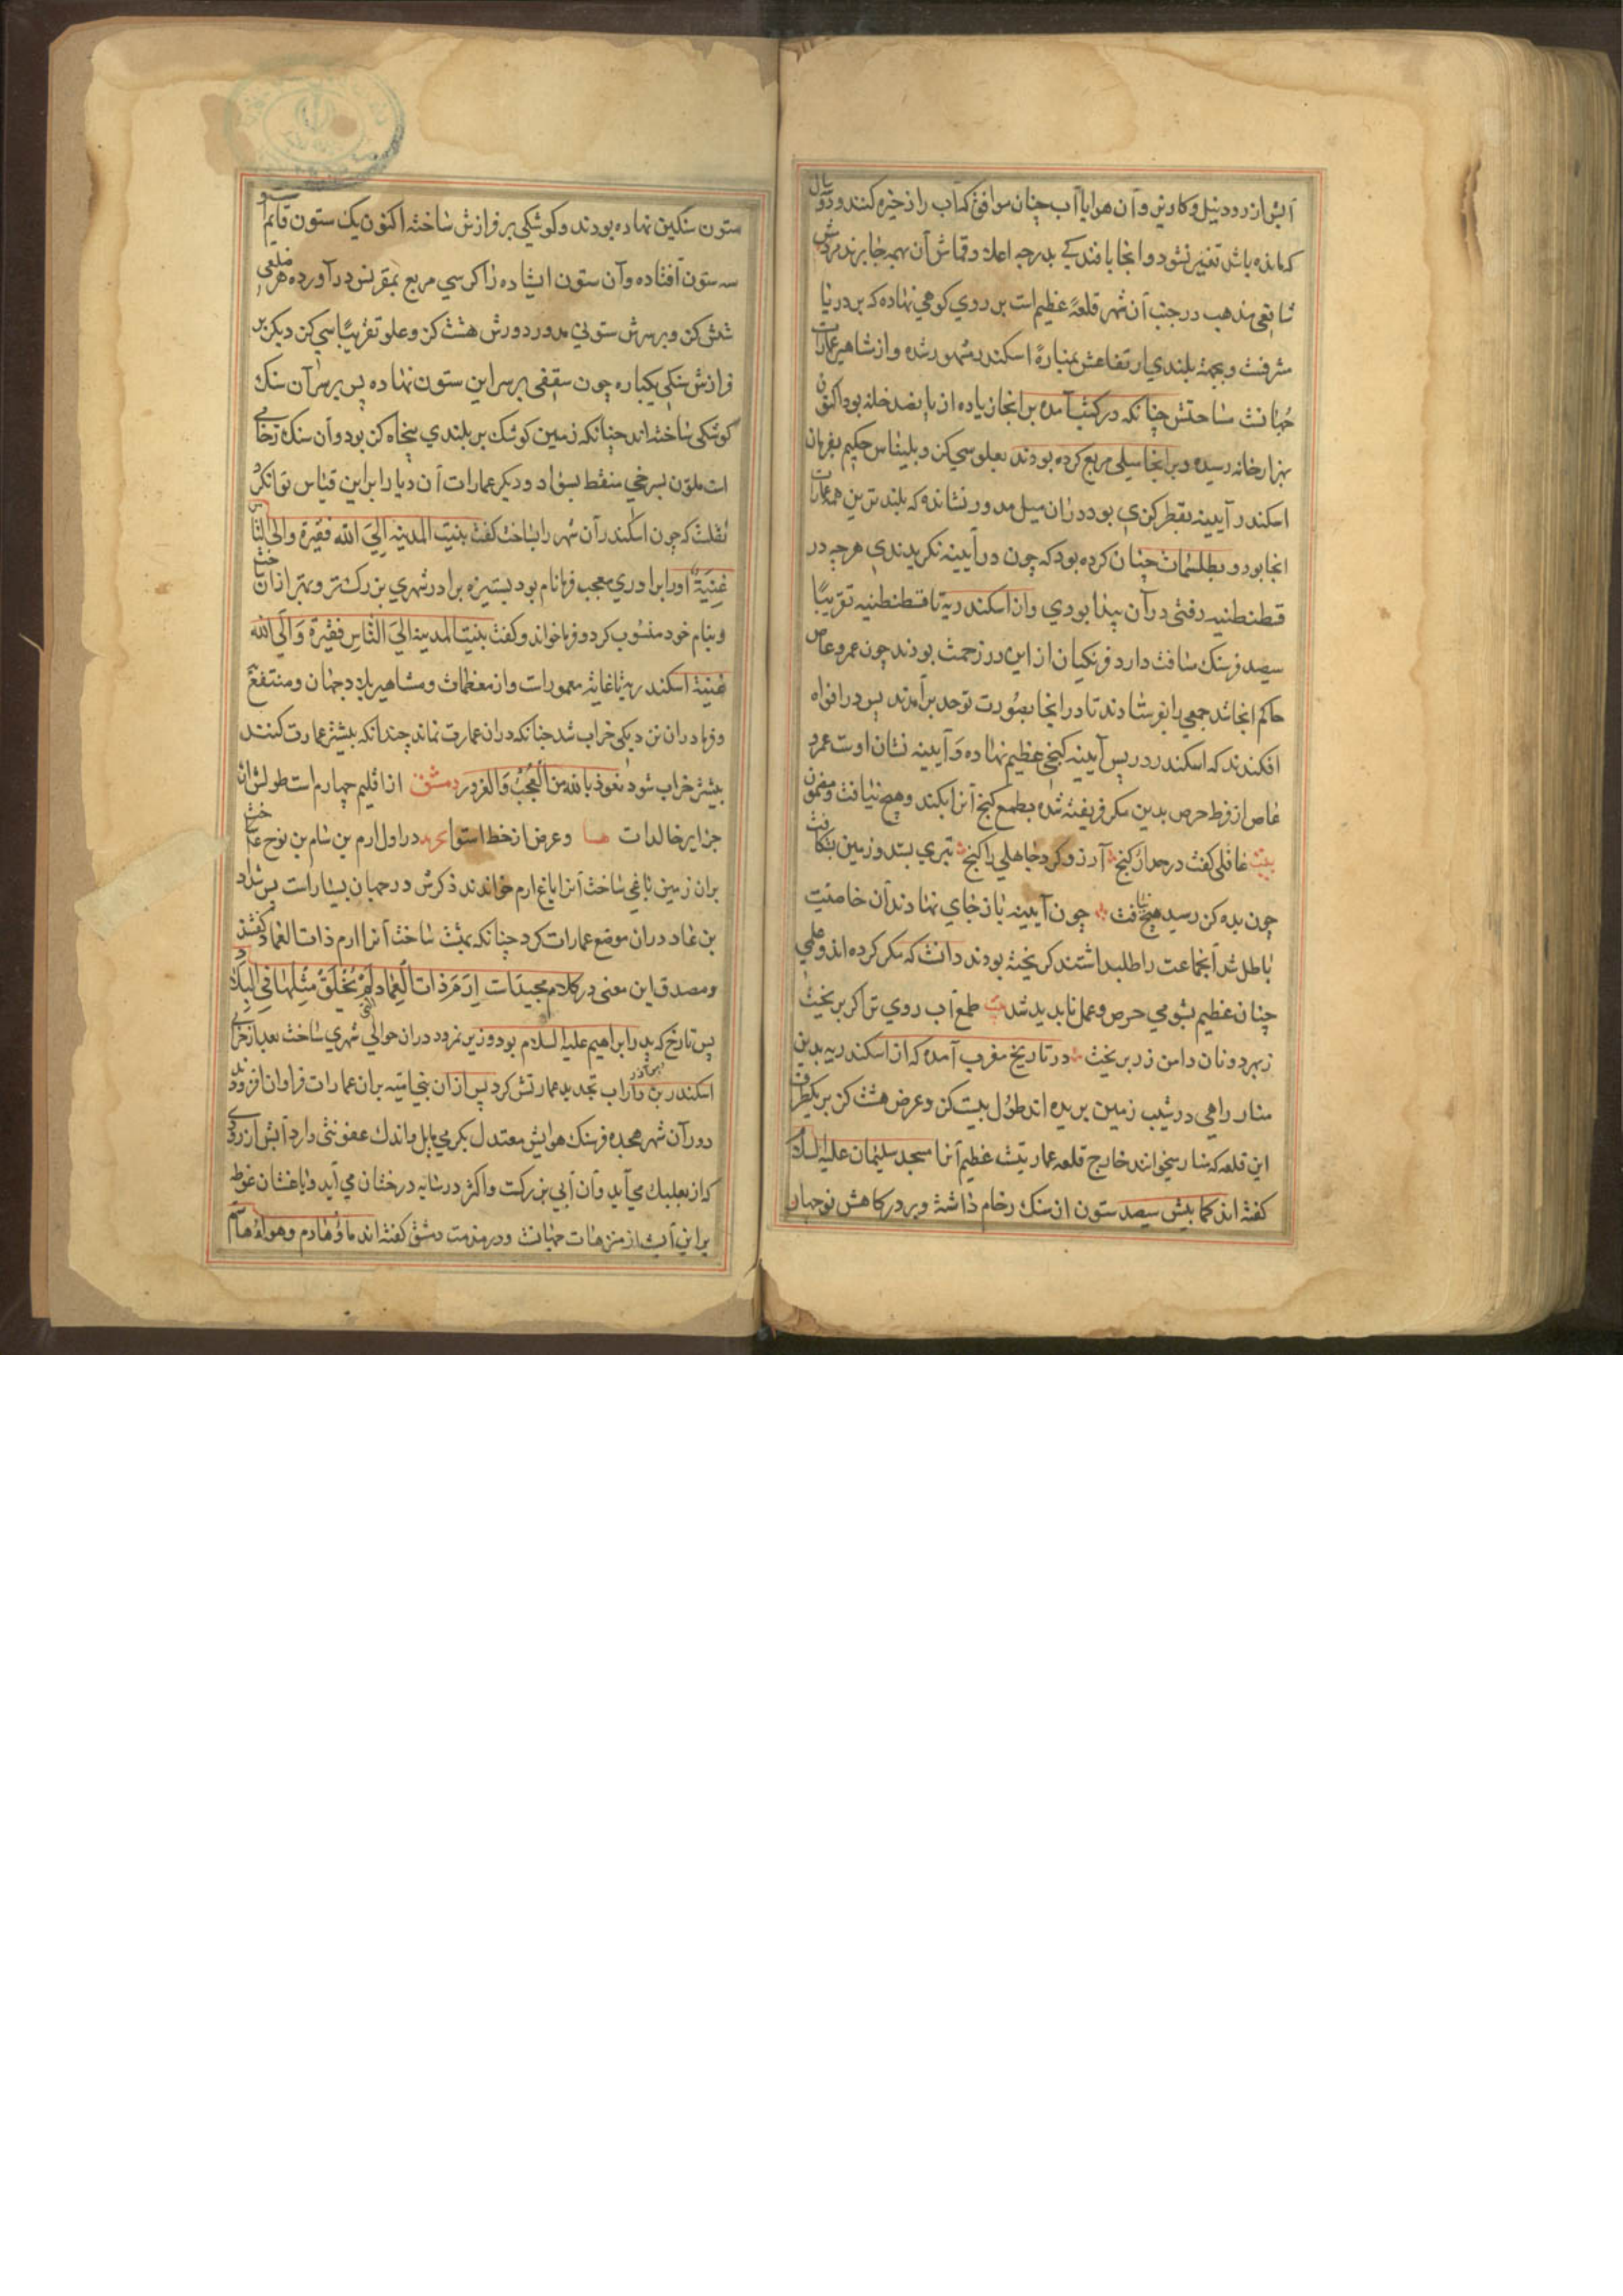 آبش از رود نیل و کاویز و آن هوا با آب چنان موافق که آب را ذخیره کنند و دو سال
که مانده باشد تغییر نشود و انجا بافندکی بدرجه اعلا و قماش آن بهمه جا برند مردمش
شافعی مذهب در جنب آن شهر قلعهٔ عظیم است بر روی کوهی نهاده که بر دریا
مشرفست و بجهة بلندی ارتفاعش بمنارهٔ اسکندر مشهور شده و از مشاهیر عمارات
جهانست مساحتش چنانکه در کتب آمده بر انجا زیاده از پانصد خانه بود اکنون
بهزار خانه رسیده و بر انجا میلی مربع کرده بودند بعلو سی کز و بلیناس حکیم بفرمان
اسکندر آیینه بقطر کزی بود در ان میل مدور نشانده که بلندترین همه عمارات
انجا بود و بطلسمات چنان کرده بود که چون در آیینه نکریدندی هرچه در
قسطنطنیه رفتی در آن پیدا بودی و از اسکندریة تا قسطنطنیه تقریبًا
سیصد فرسنک مسافت دارد فرنکیان از این در زحمت بودند چون عمرو عاص
حاکم انجا شد جمعی را بفرستادند تا در انجا بصورت توحد برآمدند پس در افواه
افکندند که اسکندر در پس آیینه کنجی عظیم نهاده و آیینه نشان اوست عمرو
عاص از فرط حرص بدین مکر فریفته شده بطمع کنج آنرا بکند و هیچ نیافت و مضمون
بیت غافلی کفت در جدار کنج آرزو کرد جاهلی را کنج تبری بستد و زمین بشکافت
چون بده کز رسید هیچ نیافت چون آیینه باز جای نهادند آن خاصیت
باطل شد آنجماعت را طلبداشتند کریخته بودند دانست که مکر کرده اند و علمی
چنان عظیم بشومی حرص و عمل ناپدید شد بیت طمع آب روی توکر بریخت
زبهر دو نان دامن زر بریخت در تاریخ مغرب آمده که از اسکندریه بدین
منار راهی در شیب زمین بریده اند طول بیست کز و عرض هشت کز بر یکطرف
این قلعه که منار میخوانند خارج قلعه عمارتیست عظیم آنرا مسجد سلیمان علیه السلام
کفته اند کما بیش سیصد ستون از سنک رخام داشته و بر درکاهش نو چهار
ستون سنکین نهاده بودند و کوشکی بر فرازش ساخته اکنون یک ستون قایم است و
سه ستون افتاده و آن ستون ایستاده را کرسی مربع بمقرنس در آورده هر ضلعی
شش کز و بر سرش ستونی مدور دورش هشت کز و علو تقریبًا سی کز دیکر بر
فرازش سنکی یکباره چون سقفی بر سر این ستون نهاده پس بر سر آن سنک
کوشکی ساخته اند چنانکه زمین کوشک بر بلندی پنجاه کز بود و آن سنک رخامی
است ملون بسرخی منقط بسواد و دیکر عمارات آن دیار را بر این قیاس توان کرد
نقلست که چون اسکندر آن شهر را بساخت کفت بنیت المدینه الی الله فقیرة والی الناس
غنیة اورا برادری معجب فرما نام بود بستیزه برادر شهری بزرکتر و بهتر از ان ساخت
و بنام خود منسوب کرد و فرما خواند و کفت بنیت المدینة الی الناس فقیرة و الی الله
غنیة اسکندریه تا غایة معمورات و از معظمات و مشاهیر بلاد جهان و منتفع
و فرما در ان نزدیکی خراب شد چنانکه در ان عمارت نماند چندانکه بیشتر عمارت کنند
بیشتر خراب شود نعوذ بالله من العجب و الغرور دمشق از اقلیم چهارم است طولش از
جزایر خالدات و عرض از خط استوا در اول ارم بن سام بن نوح
بر ان زمین باغی ساخت آنرا باغ ارم خواندند ذکرش در جهان بسیار است پس شداد
بن عاد در ان موضع عمارات کرد چنانکه بهشت ساخت آنرا ارم ذات العماد کفتند
و مصدق این معنی در کلام مجیدات ارم ذات العماد التی لم یخلق مثلها فی البلاد
پس تارخ که پدر ابراهیم علیه السلام بود وزیر نمرود در ان حوالی شهری ساخت بعد از خرابی
اسکندر بن داراب تجدید عمارتش کرد پس از ان بنی امیه بر ان عمارات فراوان افزودند
دور آن شهر هجده فرسنک هوایش معتدل بکرمی مایل و اندک عفونتی دارد آبش از رودی
که از بعلبک می آید و آن آبی بزرکست و اکثر در سایه درختان می آید و باغستان غوطه
بر این آبست از منزهات جهانست و در مذمت دمشق کفته اند ماؤها دم و هواؤها سم